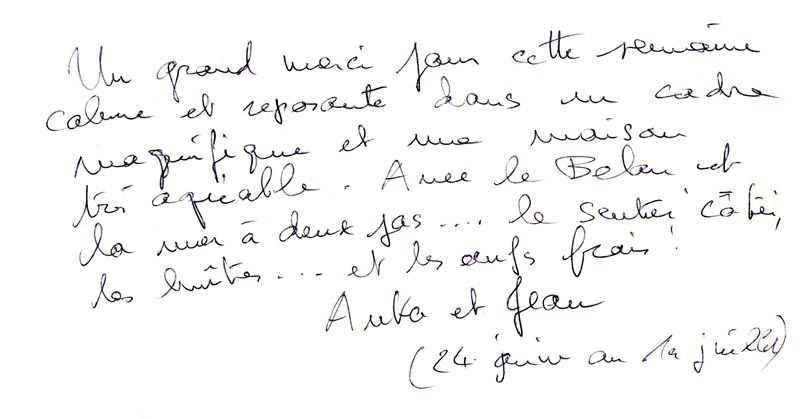 Un grand merci pour cette semaine
calme et reposante dans un cadre
magnifique et une maison
très agréable. Avec le Belon et
la mer à deux pas.... le sentier côtier,
les huîtres.... et les œufs frais!
et Jean
(24 juin au 1er juillet)